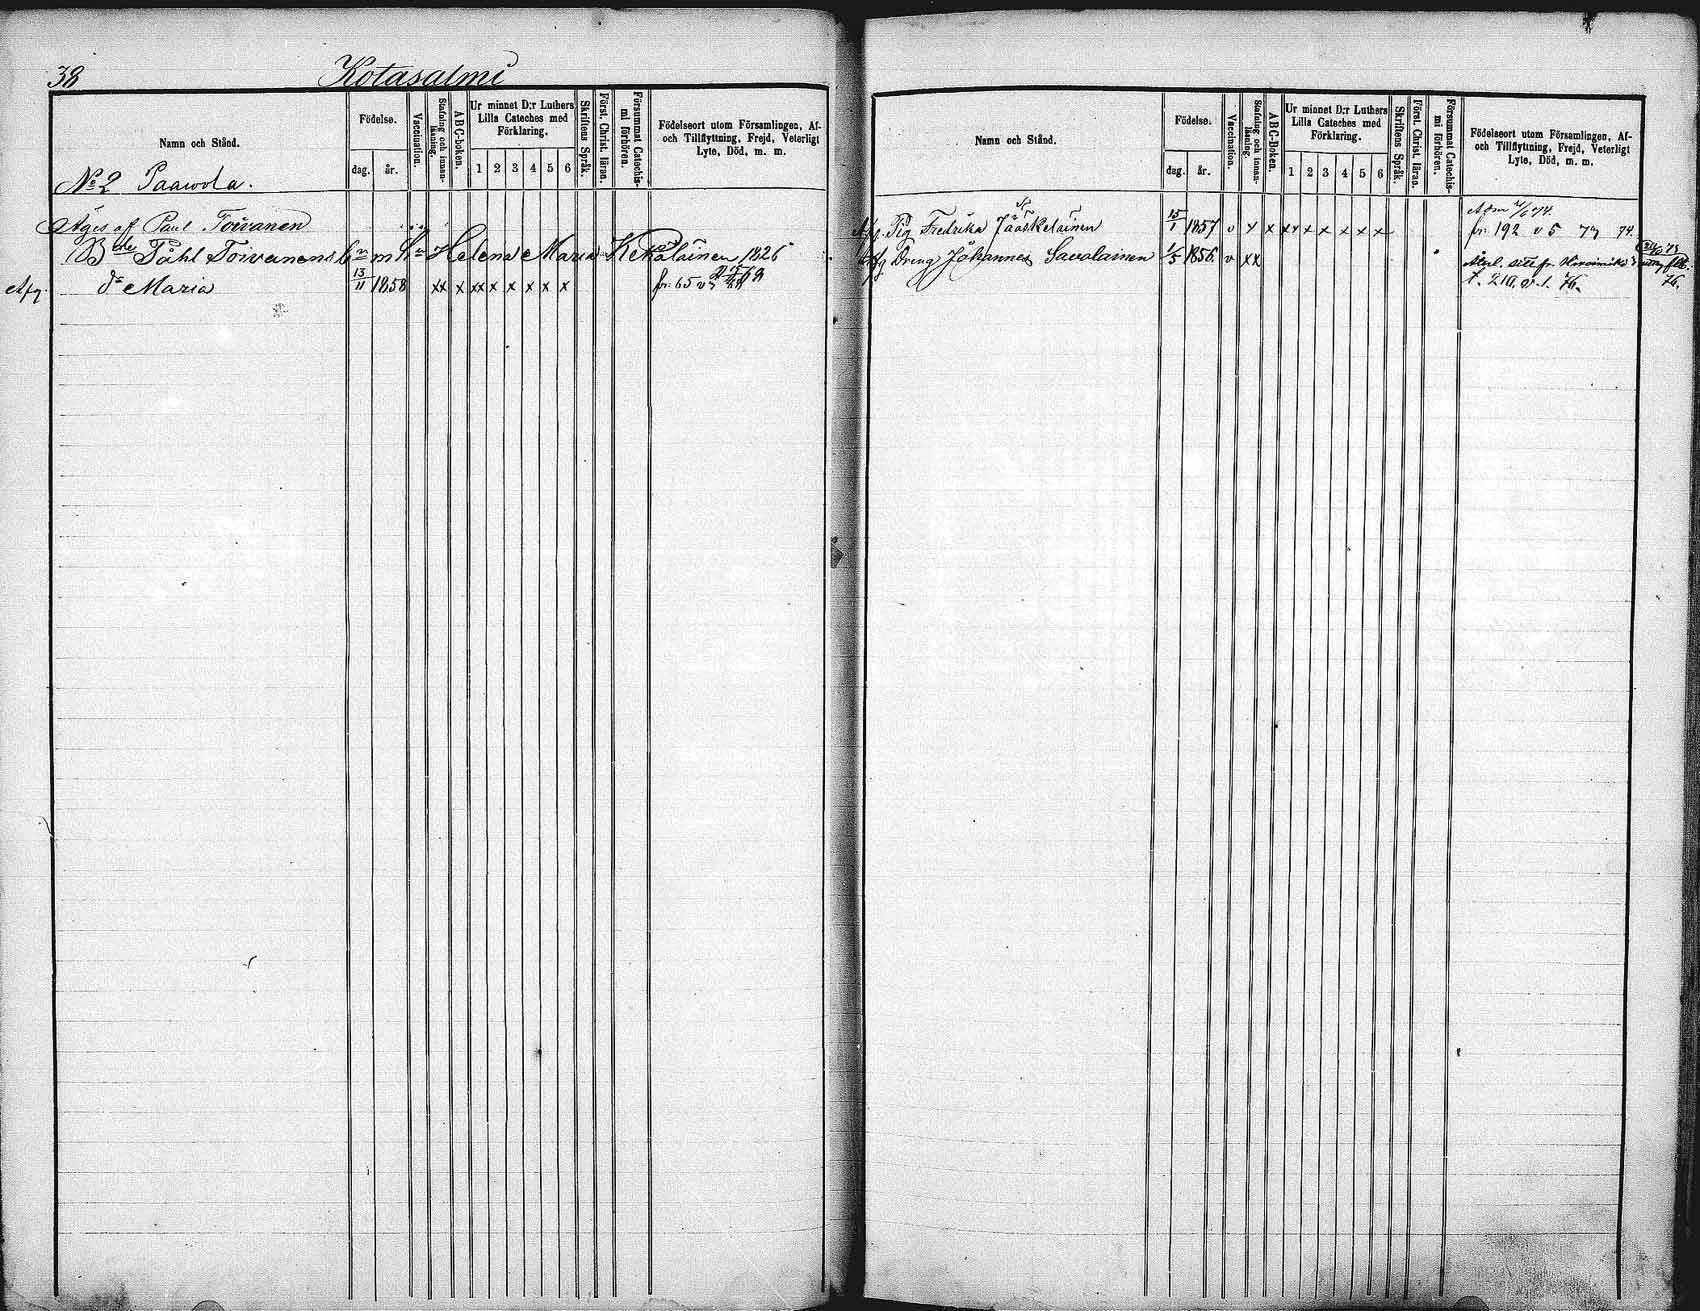 38
Kotasalmi
Namn och Stånd.
Födelse.
dag.
år.
Vaccination.
Stafning och innan-
läsning.
ABC-boken.
Ur minnet D:r Luthers
Lilla Cateches med
Förklaring.
1 2 3 4 5 6
Skriftens Språk.
Först. Christ. läran.
Försummat Catechis-
mi förhören.
Födelseort utom Församlingen, Af-
och Tillflyttning, Frejd, Veterligt
Lyte, Död, m. m.
No 2 Paawola.
Äges af Paul Toivanen
Bde Påhl Toivanens m Helena Maria Kekäläinen 1826
Afg. dr Maria 13/11 1858 xx x xx x x x x x fr. 65 v
Namn och Stånd.
Födelse.
dag.
år.
Vaccination.
Stafning och innan-
läsning.
ABC-Boken.
Ur minnet D:r Luthers
Lilla Cateches med
Förklaring.
1 2 3 4 5 6
Skriftens Språk.
Först. Christ. läran.
Försummat Catechis-
mi förhören.
Födelseort utom Församlingen, Af-
och Tillflyttning, Frejd, Veterligt
Lyte, Död, m. m.
Afg. Pig Fredrika Jääskeläinen 15/1 1857 v x x xx x x x x x fr. 192 v 5 73 74.
Afg Dreng Johannes Savolainen 1/5 1856. v xx
t. 210. v. 1. 76.